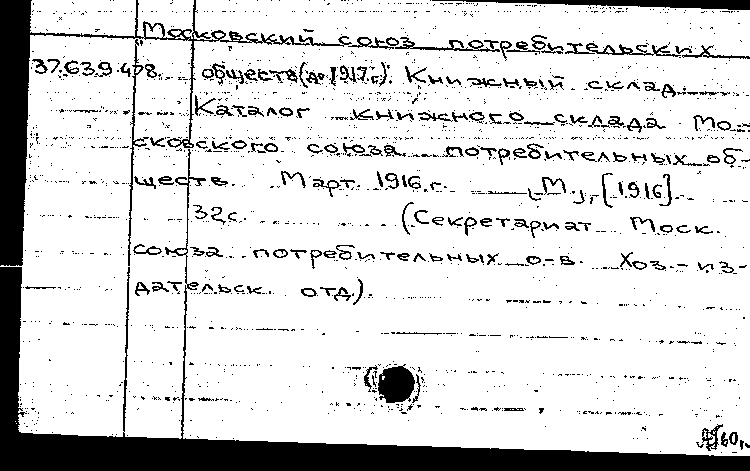 Московский союз потребительских
37.63.9.478. обществ (до 1917 г.). Книжный склад.
Каталог книжного склада Мо-
сковского союза потребительных об-
ществ. Март. 1916.г. – М., [1916].
32с. (Секретариат Моск.
союза потребительных о-в. Хоз.-из-
дательск. отд).